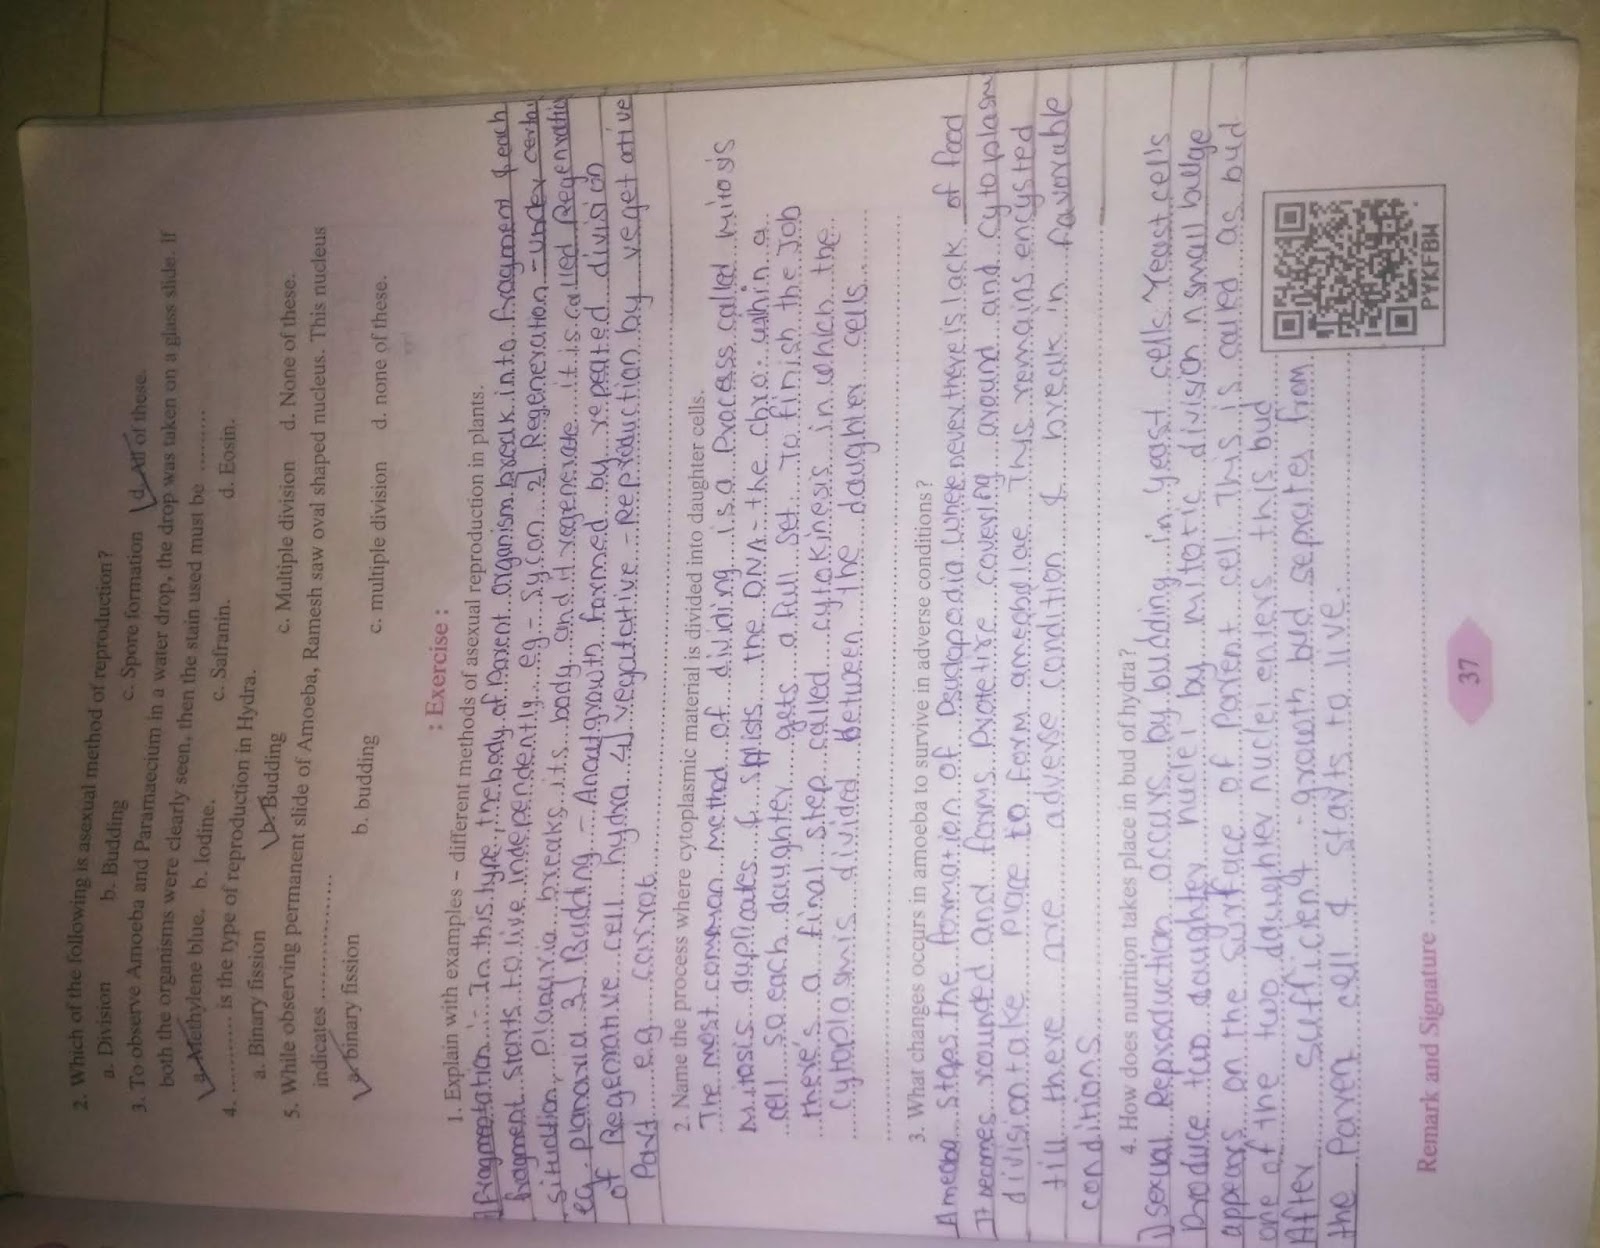 2. Which of the following is asexual method of reproduction?
a. Division b. Budding c. Spore formation d. All of these.
3. To observe Amoeba and Paramaecium in a water drop, the drop was taken on a glass slide. If
both the organisms were clearly seen, then the stain used must be .........
a. Methylene blue. b. Iodine. c. Safranin. d. Eosin.
4. .......... is the type of reproduction in Hydra.
a. Binary fission b. Budding c. Multiple division d. None of these.
5. While observing permanent slide of Amoeba, Ramesh saw oval shaped nucleus. This nucleus
indicates ...................
a. binary fission b. budding c. multiple division d. none of these.
: Exercise :
1. Explain with examples – different methods of asexual reproduction in plants.
1] Fragmentation :- In this type, the body of Parent organism break into fragment & each
fragment starts to live independently eg - Sycon 2] Regeneration - under certain
situction, Planaria breaks its body and it regenerate it is called Regenration
eg. planaria 3] Budding - An outgrowth formed by repeated division
of Regenrative cell hydra 4] vegutative - Reproduction by vegetative
Part eg carrot
2. Name the process where cytoplasmic material is divided into daughter cells.
The most common method of dividing is a Process called mitosis
Mitosis duplicates & splits the DNA - the chro within a
cell So each daughter gets a full set To finish the Job
there's a final step called cytokinesis in which the
cytoplasmis divided between the daughter cells
3. What changes occurs in amoeba to survive in adverse conditions?
Ameoba stops the formation of Psudopodia whenever there is lack of food
It becomes rounded and forms Protetire covering around and cytoplasm
division take place to form ameobulae Thus remains encysted
till there are adverse condition & break in favorable
conditions
4. How does nutrition takes place in bud of hydra?
1] sexual Reproduction occurs by budding in Yeast cells Yeast cell's
Produce two daughter nuclei by mitotic division n small bulge
appears on the surface of Parent cell This is called as bud
one of the two daughter nuclei enters this bud
After sufficient growth bud seprates from
the Paren cell & starts to live.
PYKFBW
Remark and Signature
37